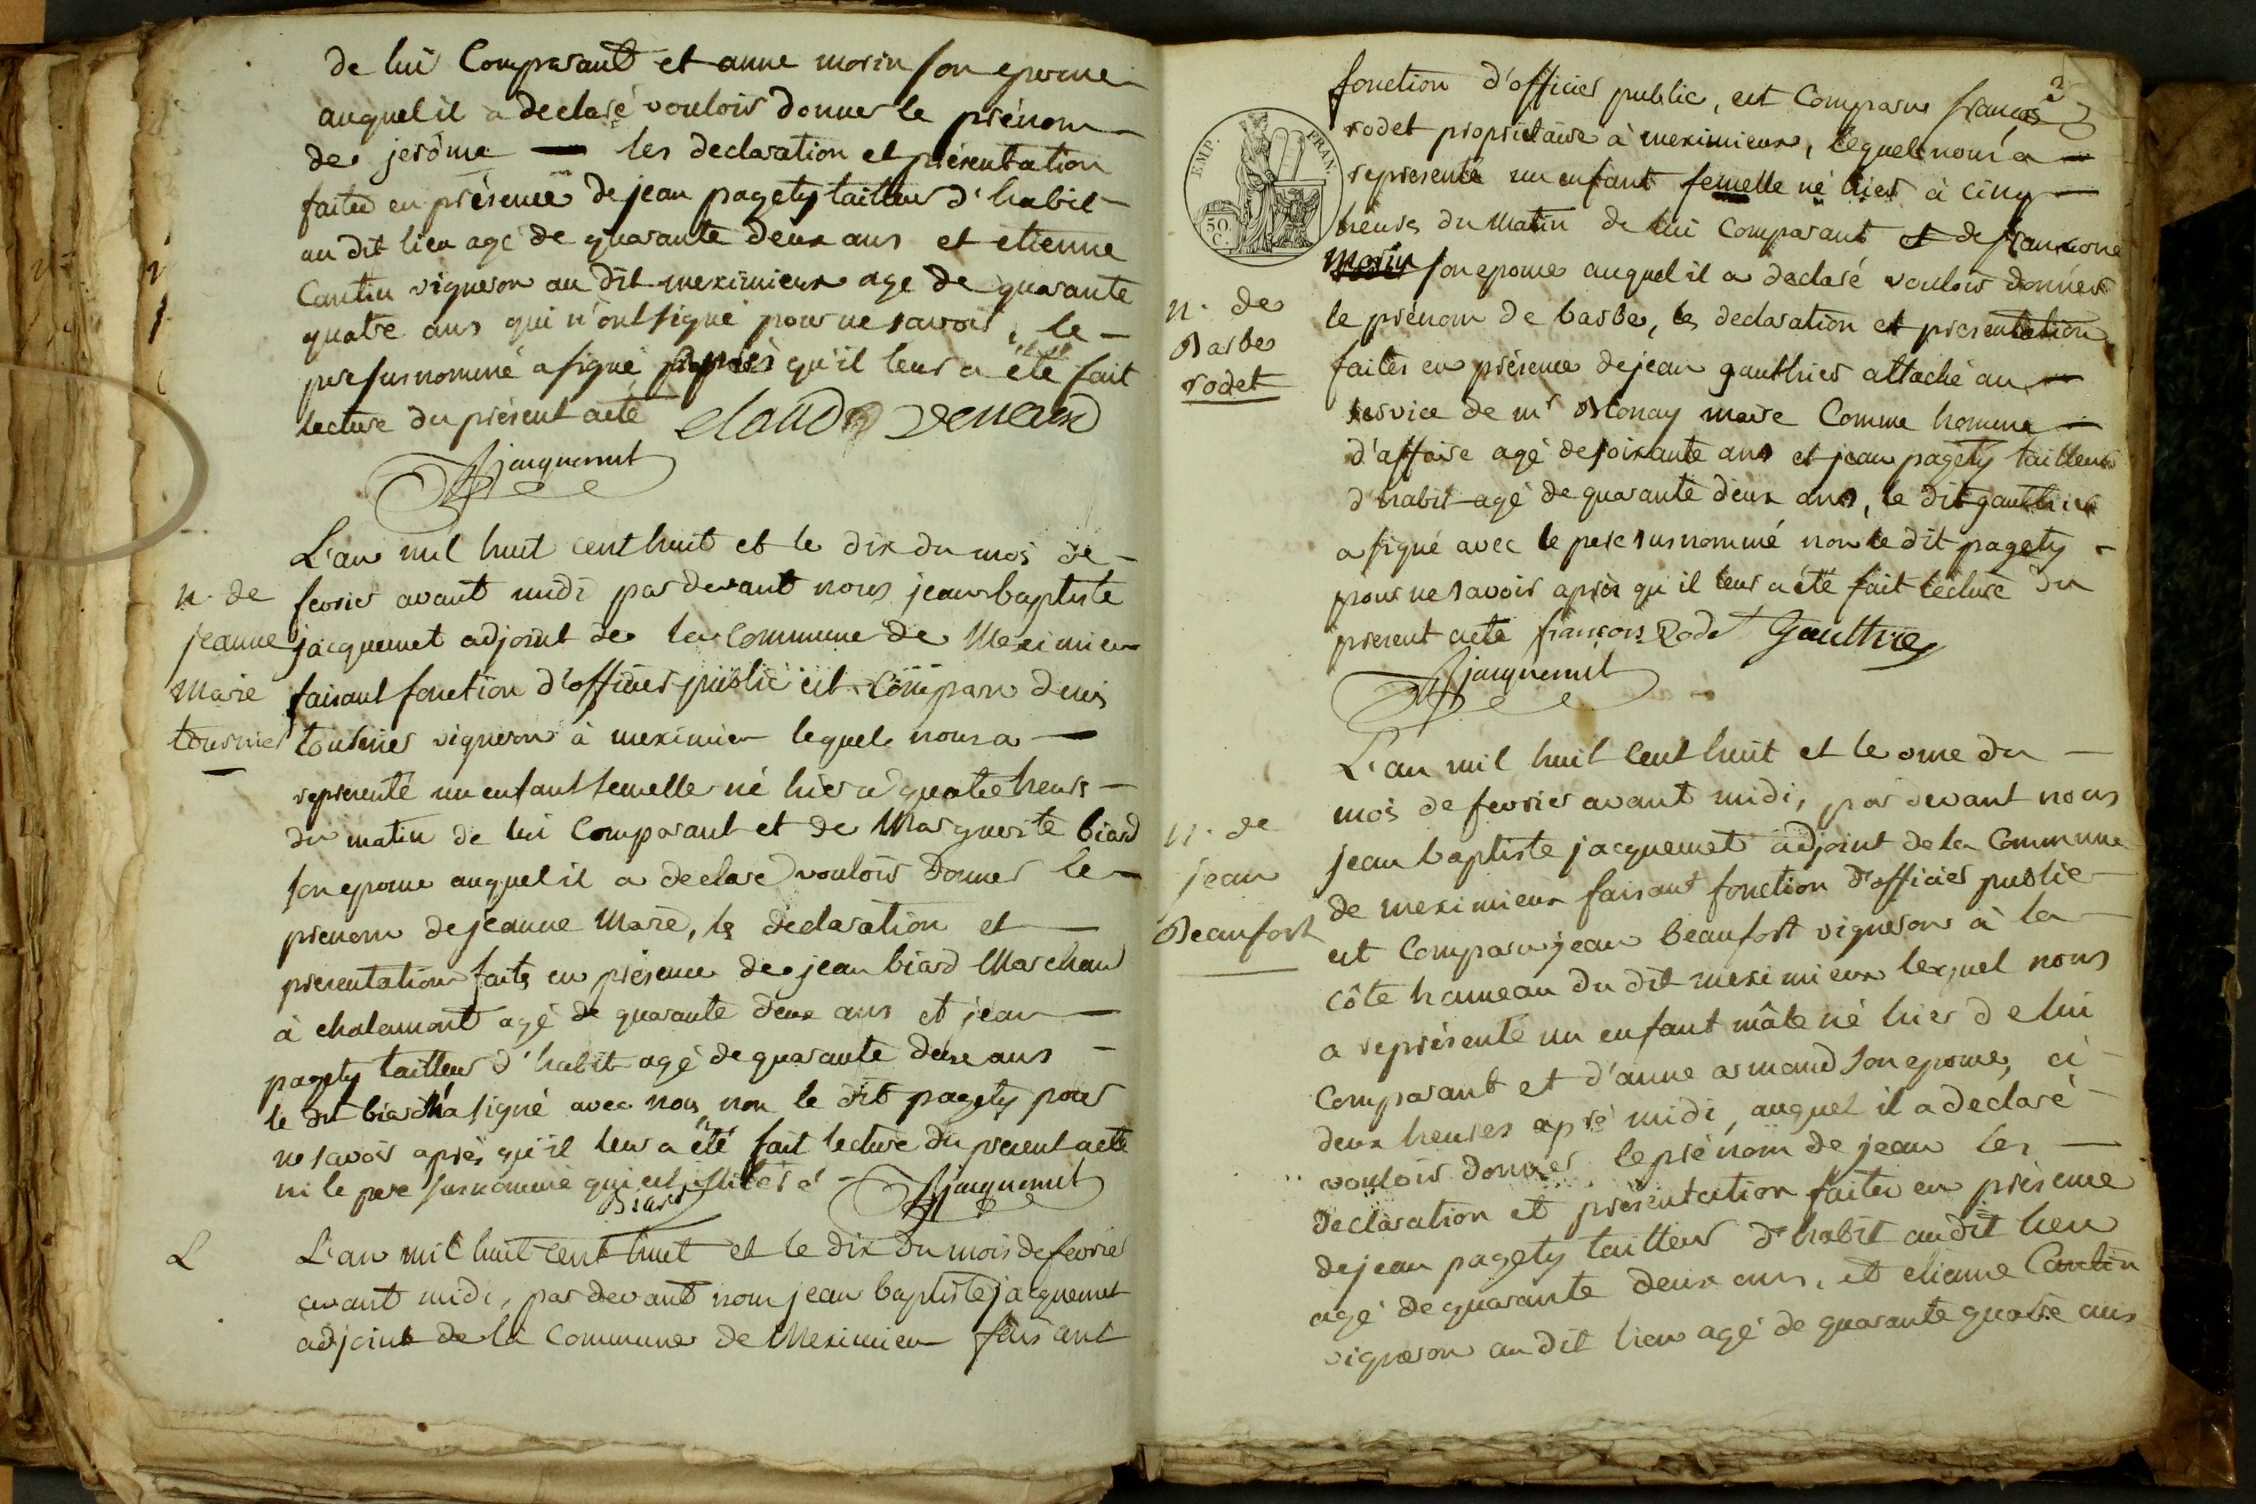 de lui Comparant et anne morin son epouse
auquel il a declaré vouloir donner le prénom
de jerôme les declaration et présentation
faites en présence de jean pagety tailleur d'habit
au dit lieu agé de quarante deux ans et etienne
Cantin vigneron au dit meximieux age de quarante
quatre ans qui n'ont signé pour ne savoir, le
pere susnommé a signé après qu'il leur a été fait
lecture du présent acte claude
Jjacquemet
L'an mil huit cent huit et le dix du mois de
n. de
fevrier avant midi par devant nous jean baptiste
jeanne
jacquemet adjoint de la commune de Meximieu
Marie
faisant fonction d'officier public est comparu denis
tournier
tournier vigneron à meximieu lequel nous a
representé un enfant femelle né hier a quatre heure
du matin de lui Comparant et de Marguerite biard
son epouse auquel il a declaré vouloir donner le
prenom de jeanne Marie, les declaration et
presentation faites en présence de jean biard Marchand
à chalamont agé de quarante deux ans et jean
pagety tailleur d'habit agé de quarante deux ans
le dit biard a signé avec nous non le dit pagety pour
ne savoir après qu'il leur a été fait lecture du present acte
ni le pere susnommé qui est illiteré Jjacquemet
Biard
L
L'an mil huit cent huit et le dix du mois de fevrier
avant midi, par devant nous jean baptiste jacquemet
adjoint de la Commune de Meximieu faisant
2
fonction d'officier public, est Comparu françois
EMP. FRAN.
50 C.
rodet proprietaire à meximieux, lequel nous a
representé un enfant femelle né hier à cinq
heures du Matin de lui Comparant et de francoise
Morin son epouse auquel il a declaré vouloir donner
n. de
Barbe
rodet
le prénom de barbe, les declaration et presentation
faites en présence de jean gauthier attaché au
service de mr Monay maire Comme homme
d'affaire agé de soixante ans et jean pagety tailleur
d'habit agé de quarante deux ans, le dit gauthier
a signé avec le pere susnommé non le dit pagety
pour ne savoir après qu'il leur a été fait lecture du
present acte françois Rodet Gauthier
Jjacquemet
L'an mil huit cent huit et le onze du
mois de fevrier avant midi, par devant nous
n. de
jean
Beaufort
jean baptiste jacquemet adjoint de la Commune
de meximieux faisant fonction d'officier public
est Comparu jean beaufort vigneron à la
côte hameau du dit meximieux lequel nous
a représenté un enfant mâle né hier de lui
Comparant et d'anne armand son epouse, ci
deux heures apré midi, auquel il a declaré
vouloir donner le prénom de jean les
declaration et présentation faites en présence
de jean pagety tailleur d'habit au dit lieu
agé de quarante deux ans, et etienne Cantin
vigneron au dit lieu agé de quarante quatre ans